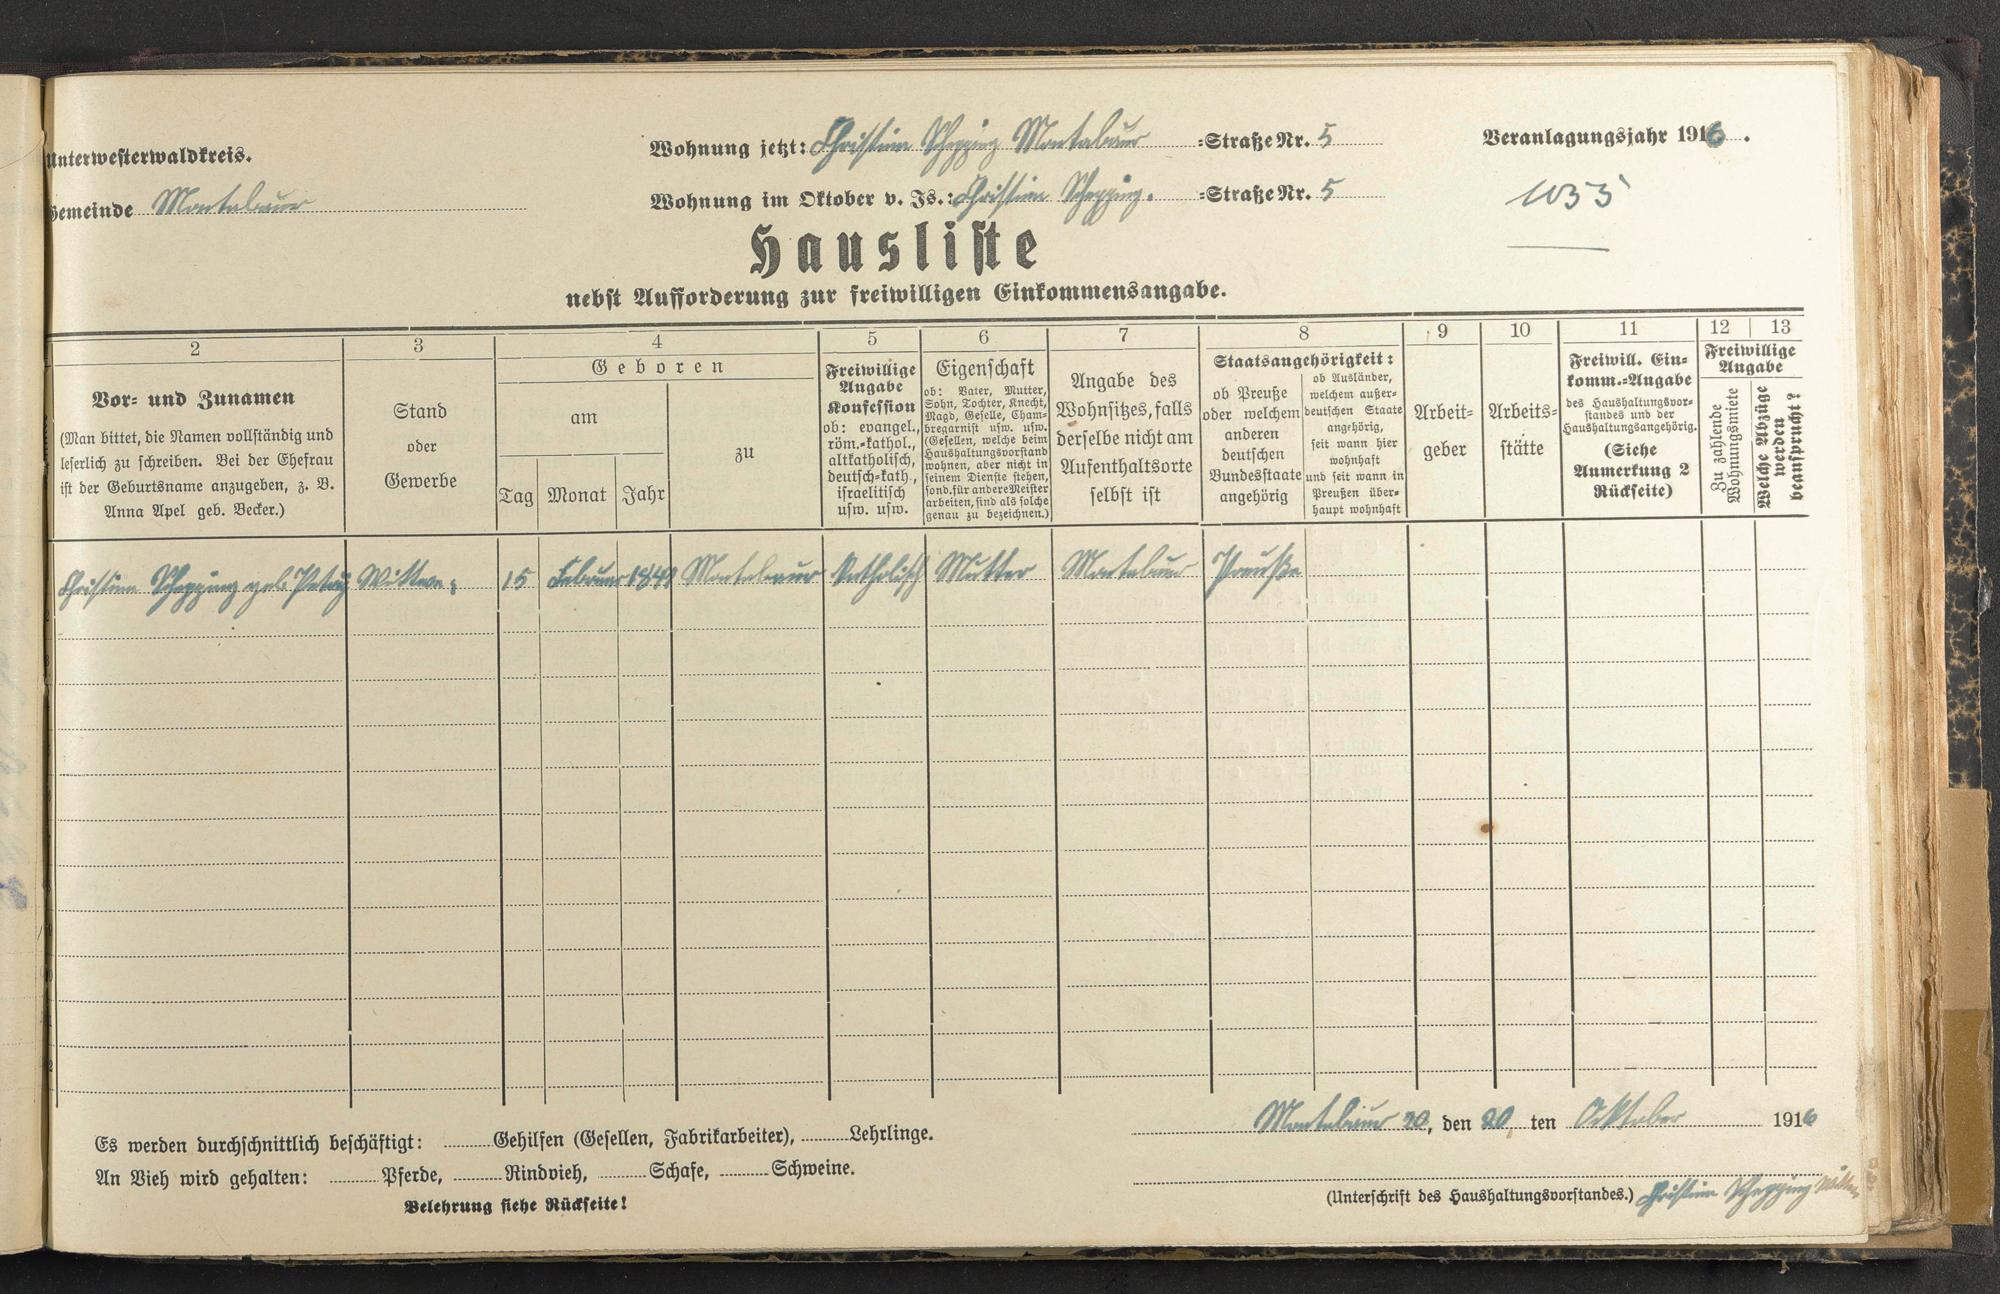 Unterwesterwaldkreis.
Gemeinde Montabaur
Wohnung jetzt: Christine Schepping Montabaur =Straße Nr. 5
Wohnung im Oktober v. Js.: Christine Schepping. =Straße Nr. 5
Veranlagungsjahr 1916.
1035
Hausliste
nebst Aufforderung zur freiwilligen Einkommensangabe.
2
Vor- und Zunamen
(Man bittet, die Namen vollständig und
leserlich zu schreiben. Bei der Ehefrau
ist der Geburtsname anzugeben, z. B.
Anna Apel geb. Becker.)
3
Stand
oder
Gewerbe
4
Geboren
am
Tag Monat Jahr
zu
5
Freiwillige
Angabe
Konfession
ob: evangel.,
röm.-kathol.,
altkatholisch,
deutsch-kath.,
israelitisch
usw. usw.
6
Eigenschaft
ob: Vater, Mutter,
Sohn, Tochter, Knecht,
Magd, Geselle, Cham-
bregarnist usw. usw.
(Gesellen, welche beim
Haushaltungsvorstand
wohnen, aber nicht in
seinem Dienste stehen,
sond. für andere Meister
arbeiten, sind als solche
genau zu bezeichnen.)
7
Angabe des
Wohnsitzes, falls
derselbe nicht am
Aufenthaltsorte
selbst ist
8
Staatsangehörigkeit:
ob Preuße
oder welchem
anderen
deutschen
Bundesstaate
angehörig
ob Ausländer,
welchem außer-
deutschen Staate
angehörig,
seit wann hier
wohnhaft
und seit wann in
Preußen über-
haupt wohnhaft
9
Arbeit-
geber
10
Arbeits-
stätte
11
Freiwill. Ein-
komm.-Angabe
des Haushaltungsvor-
standes und der
Haushaltungsangehörig.
(Siehe
Anmerkung 2
Rückseite)
12 13
Freiwillige
Angabe
Zu zahlende
Wohnungsmiete
Welche Abzüge
werden
beansprucht?
Christine Schepping geb. Witwe 15 Februar Montabaur Katholisch Mutter Montabaur Preuße
Es werden durchschnittlich beschäftigt: Gehilfen (Gesellen, Fabrikarbeiter), Lehrlinge.
An Vieh wird gehalten: Pferde, Rindvieh, Schafe, Schweine.
Belehrung siehe Rückseite!
Montabaur 20, den 20 ten Oktober 1916
(Unterschrift des Haushaltungsvorstandes.) Christine Schepping